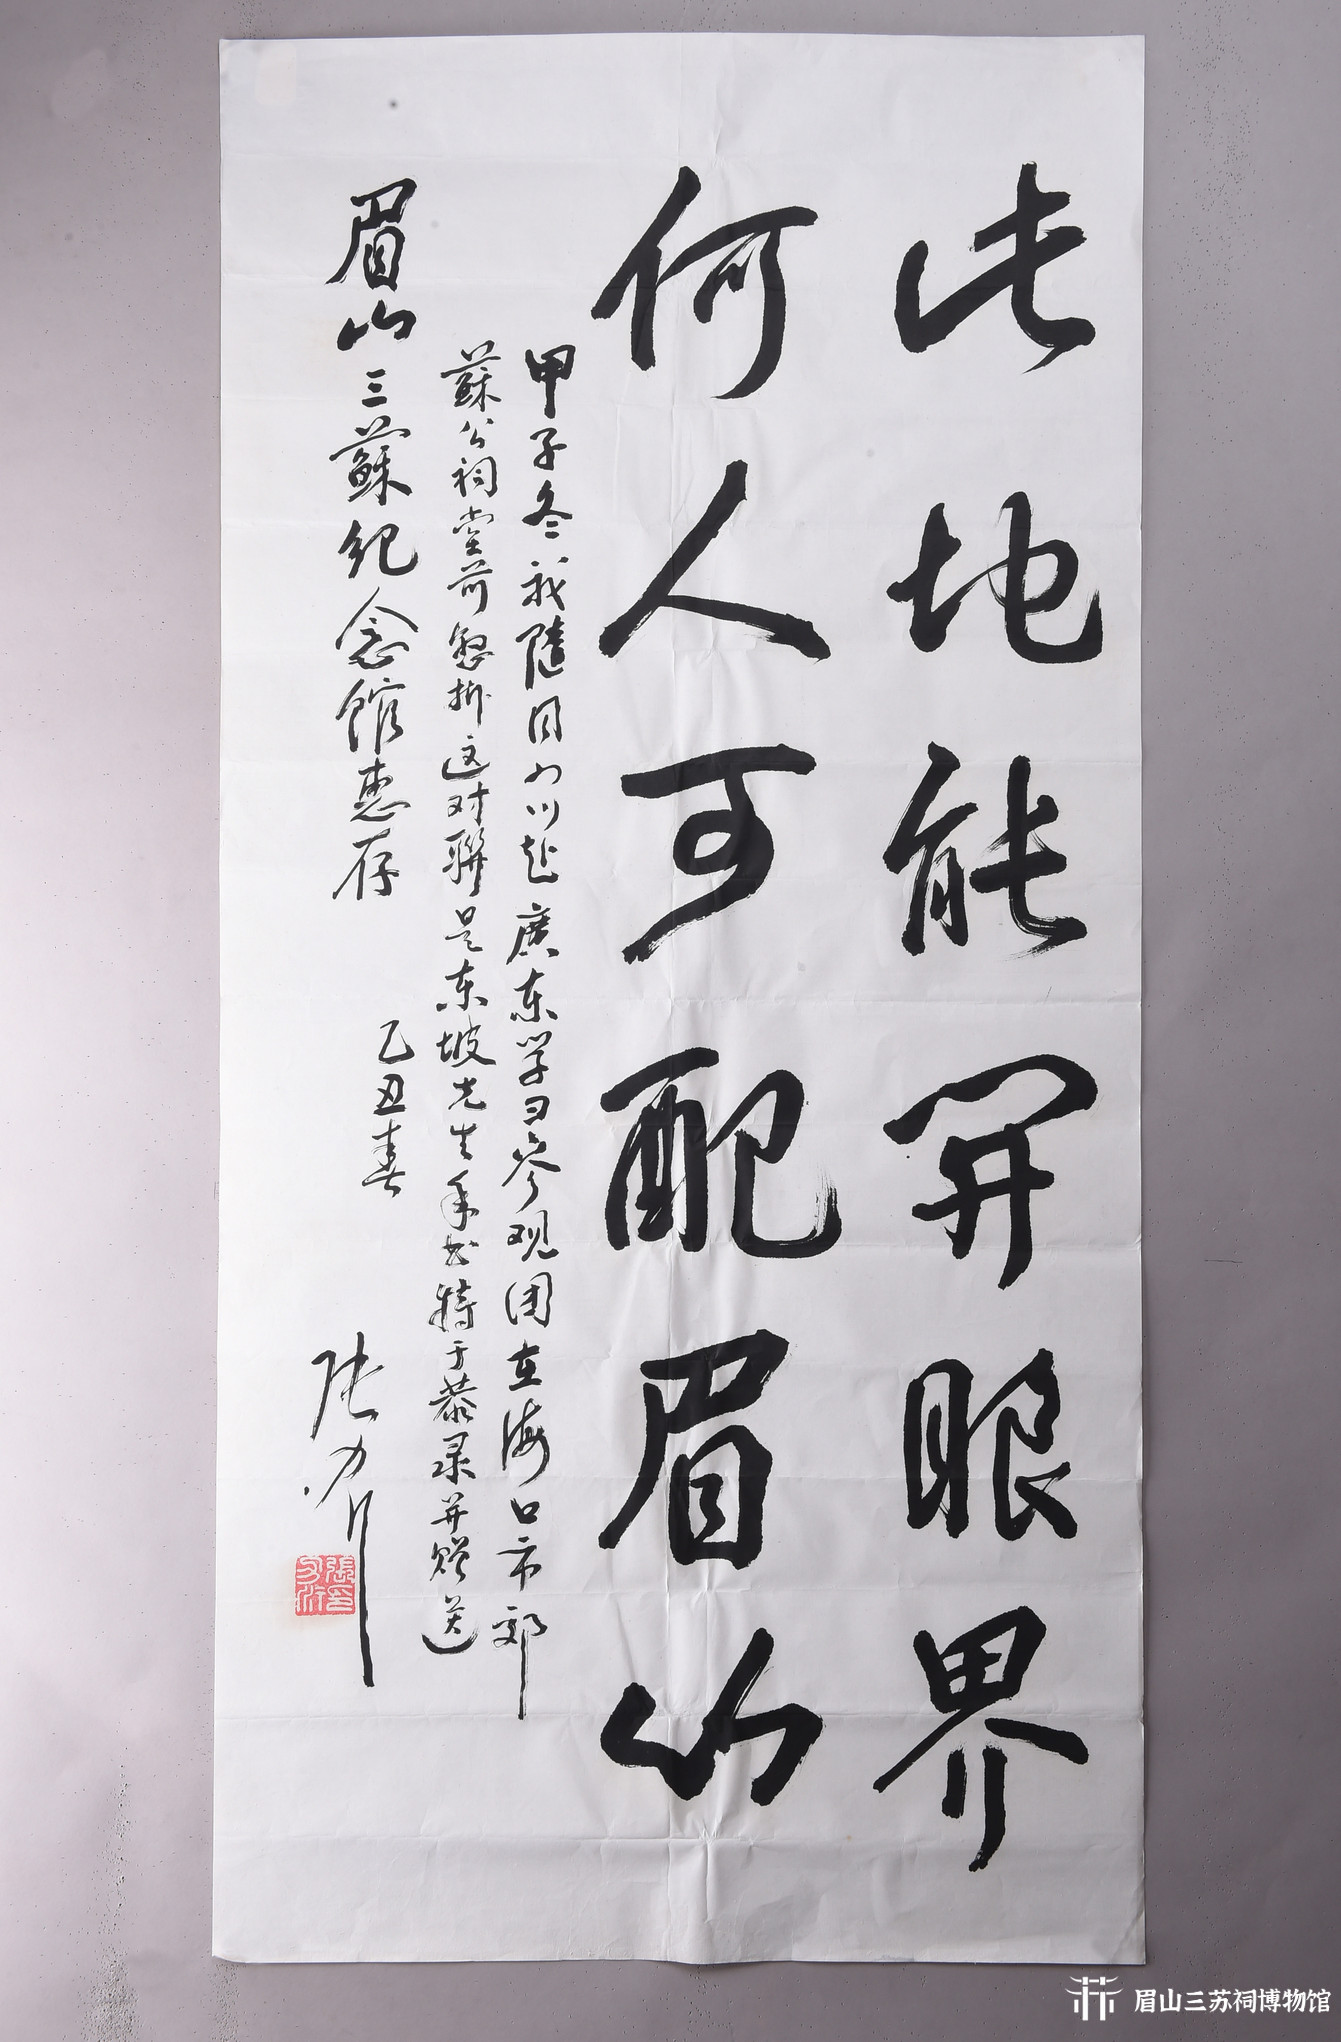 此地能开眼界
何人可配眉山
甲子冬我随同四川赴广东学习参观团在海口市郊
苏公祠堂前怒折这对联是东坡先生手书特于恭录并赠送
眉山三苏纪念馆惠存
乙丑春
张力行
張力行印
眉山三苏祠博物馆